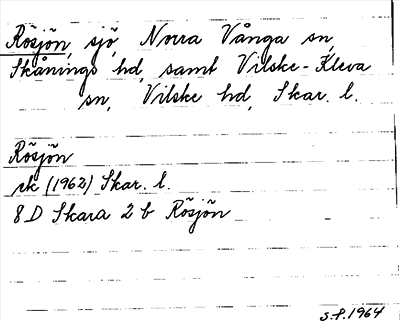 Rösjön, sjö, Norra Vånga sn,
Skånings hd, samt Vilske-Kleva
sn, Vilske hd, Skar. l.
Rösjön
rk (1962) Skar. l.
8 D Skara 2 b Rösjön
S.P. 1964